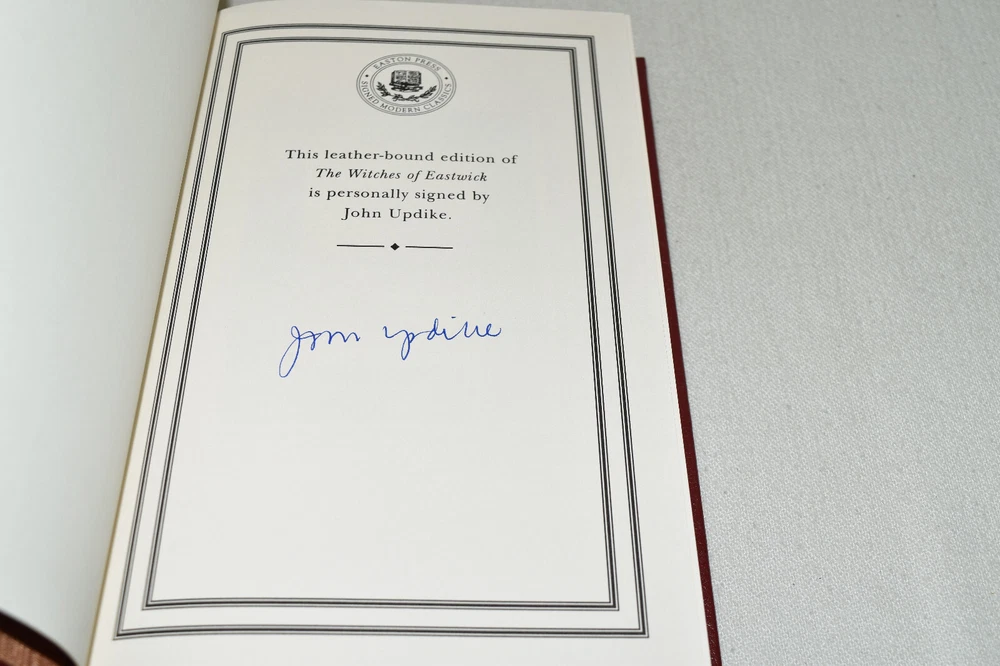 EASTON PRESS
SIGNED MODERN CLASSICS
This leather-bound edition of
The Witches of Eastwick
is personally signed by
John Updike.
John Updike